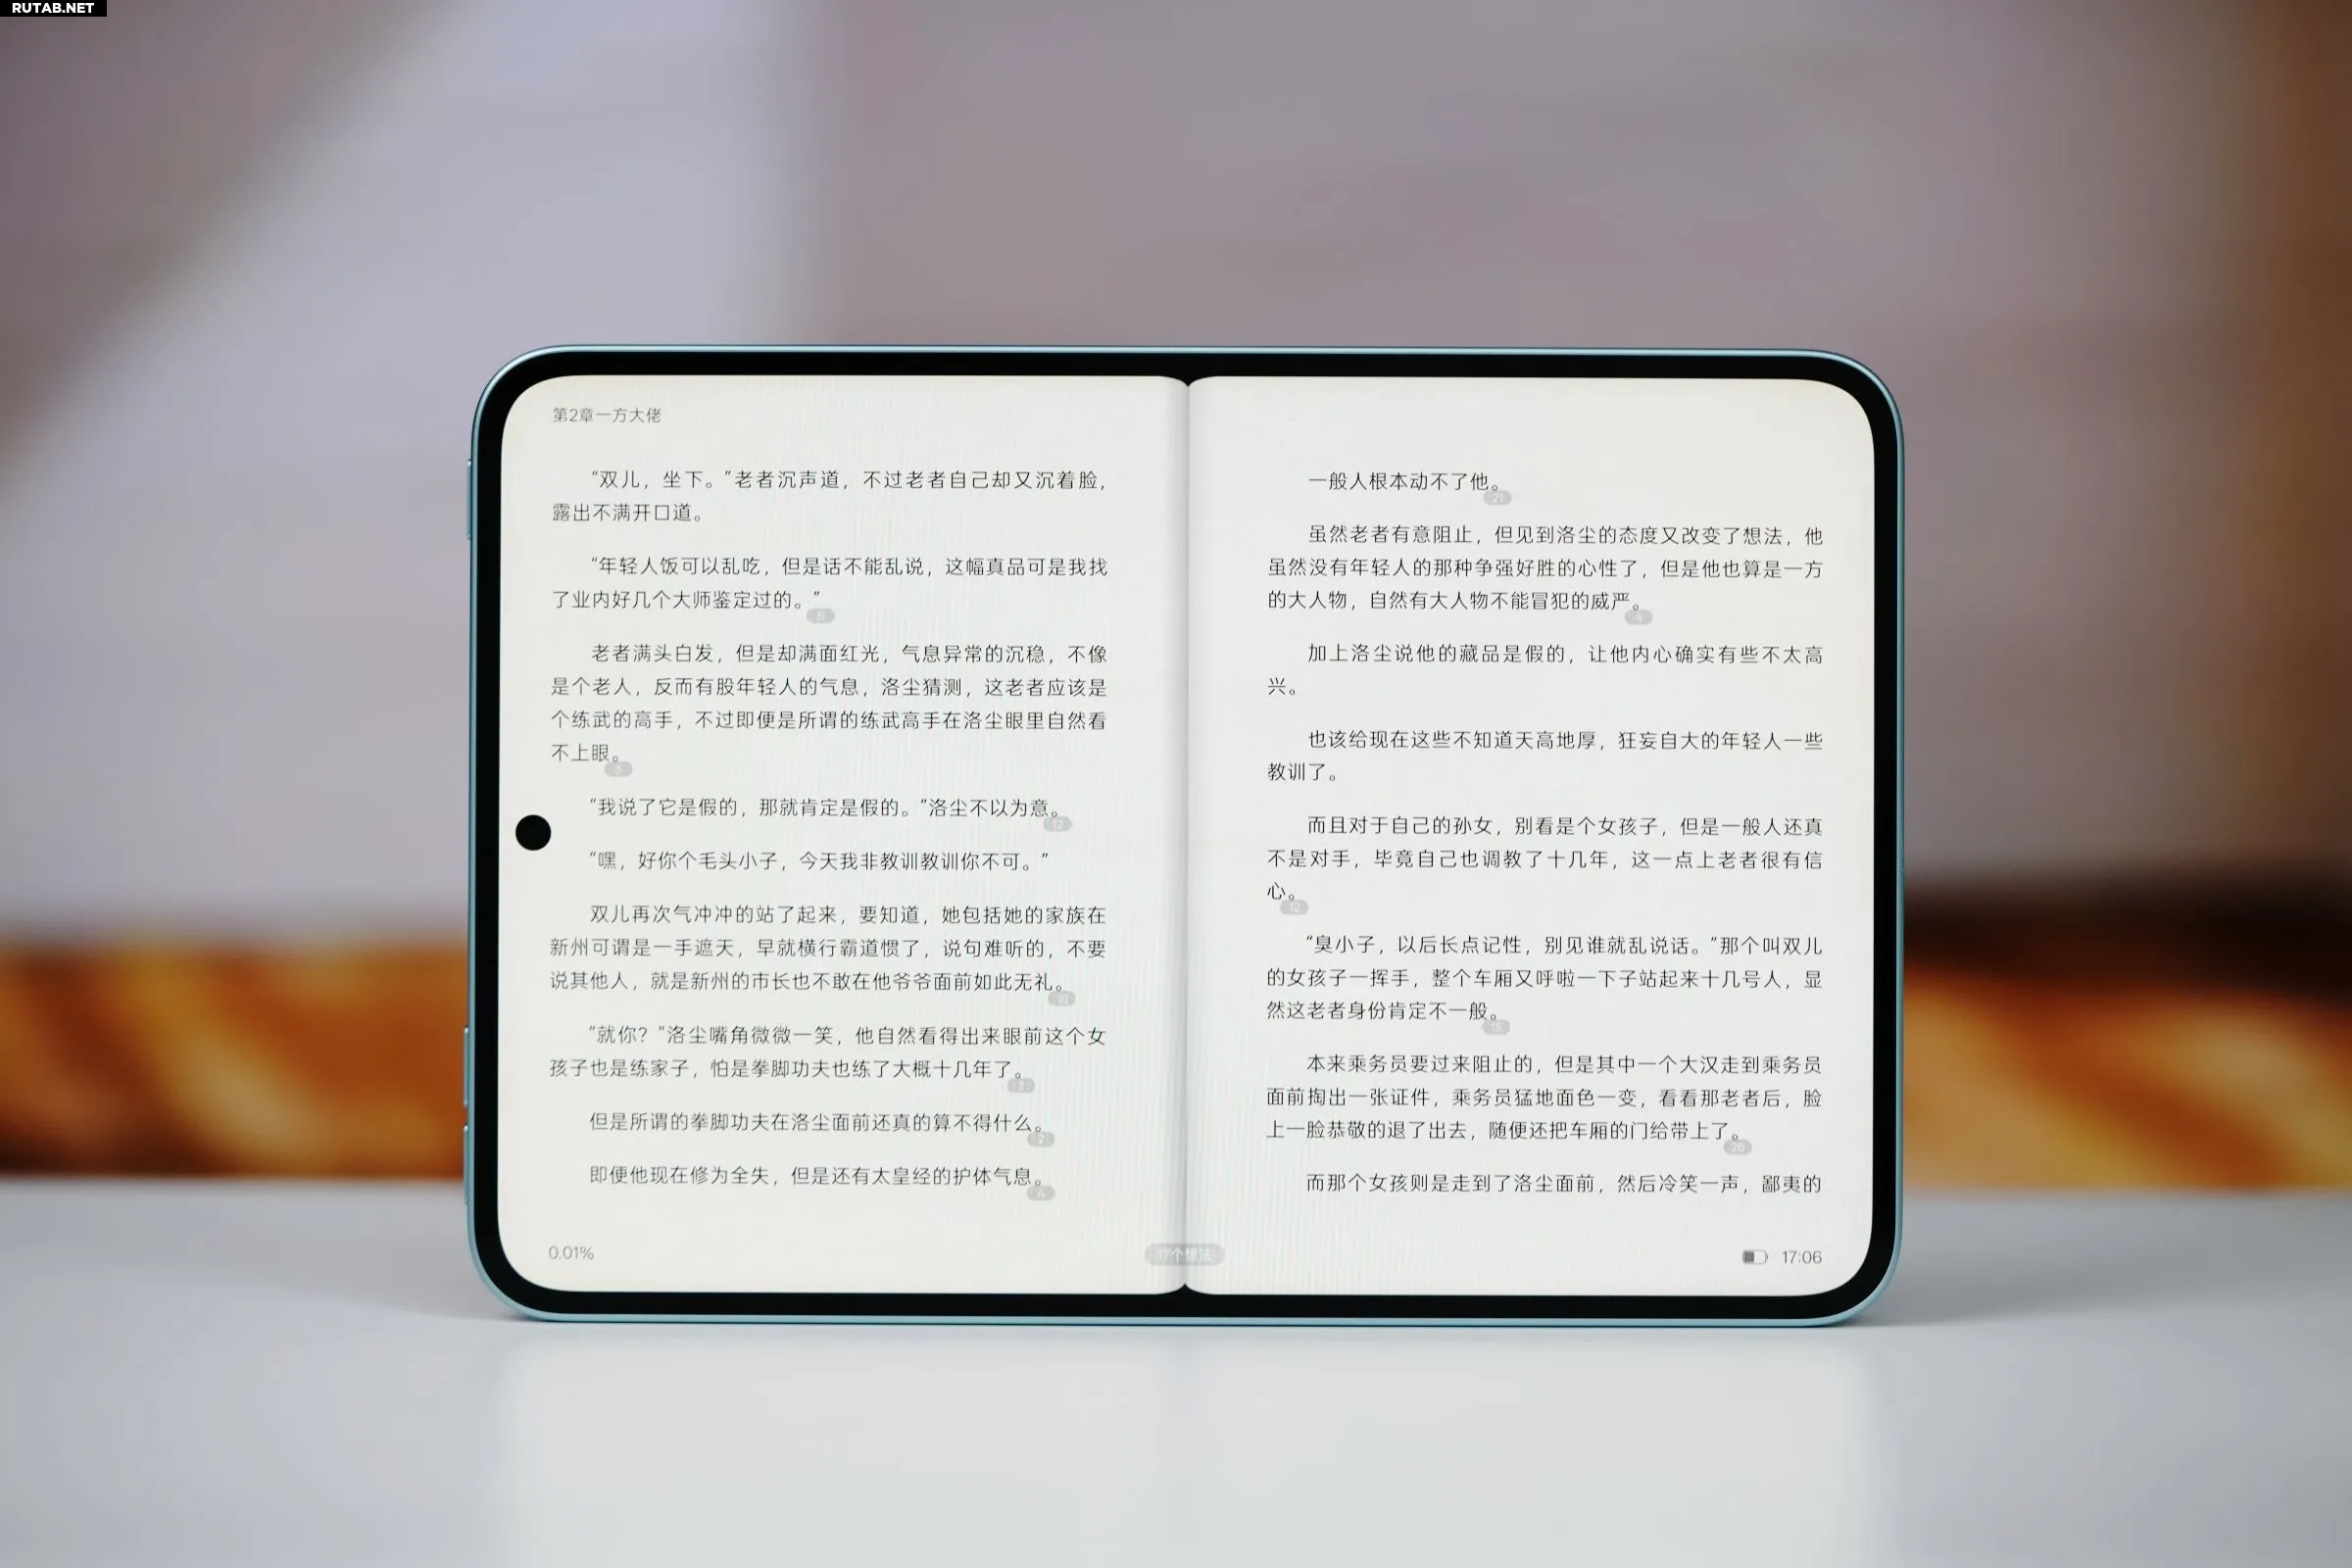 RUTAB.NET
第2章一方大佬
“双儿，坐下。”老者沉声道，不过老者自己却又沉着脸，
露出不满开口道。
“年轻人饭可以乱吃，但是话不能乱说，这幅真品可是我找
了业内好几个大师鉴定过的。”
老者满头白发，但是却满面红光，气息异常的沉稳，不像
是个老人，反而有股年轻人的气息，洛尘猜测，这老者应该是
个练武的高手，不过即便是所谓的练武高手在洛尘眼里自然看
不上眼。
“我说了它是假的，那就肯定是假的。”洛尘不以为意。
12
“嘿，好你个毛头小子，今天我非教训教训你不可。”
双儿再次气冲冲的站了起来，要知道，她包括她的家族在
新州可谓是一手遮天，早就横行霸道惯了，说句难听的，不要
说其他人，就是新州的市长也不敢在他爷爷面前如此无礼。
“就你？”洛尘嘴角微微一笑，他自然看得出来眼前这个女
孩子也是练家子，怕是拳脚功夫也练了大概十几年了。
但是所谓的拳脚功夫在洛尘面前还真的算不得什么。
即便他现在修为全失，但是还有太皇经的护体气息。
0.01%
17个想法
一般人根本动不了他。
21
虽然老者有意阻止，但见到洛尘的态度又改变了想法，他
虽然没有年轻人的那种争强好胜的心性了，但是他也算是一方
的大人物，自然有大人物不能冒犯的威严。
加上洛尘说他的藏品是假的，让他内心确实有些不太高
兴。
也该给现在这些不知道天高地厚，狂妄自大的年轻人一些
教训了。
而且对于自己的孙女，别看是个女孩子，但是一般人还真
不是对手，毕竟自己也调教了十几年，这一点上老者很有信
心。
12
“臭小子，以后长点记性，别见谁就乱说话。”那个叫双儿
的女孩子一挥手，整个车厢又呼啦一下子站起来十几号人，显
然这老者身份肯定不一般。
15
本来乘务员要过来阻止的，但是其中一个大汉走到乘务员
面前掏出一张证件，乘务员猛地面色一变，看看那老者后，脸
上一脸恭敬的退了出去，随便还把车厢的门给带上了。
而那个女孩则是走到了洛尘面前，然后冷笑一声，鄙夷的
17:06